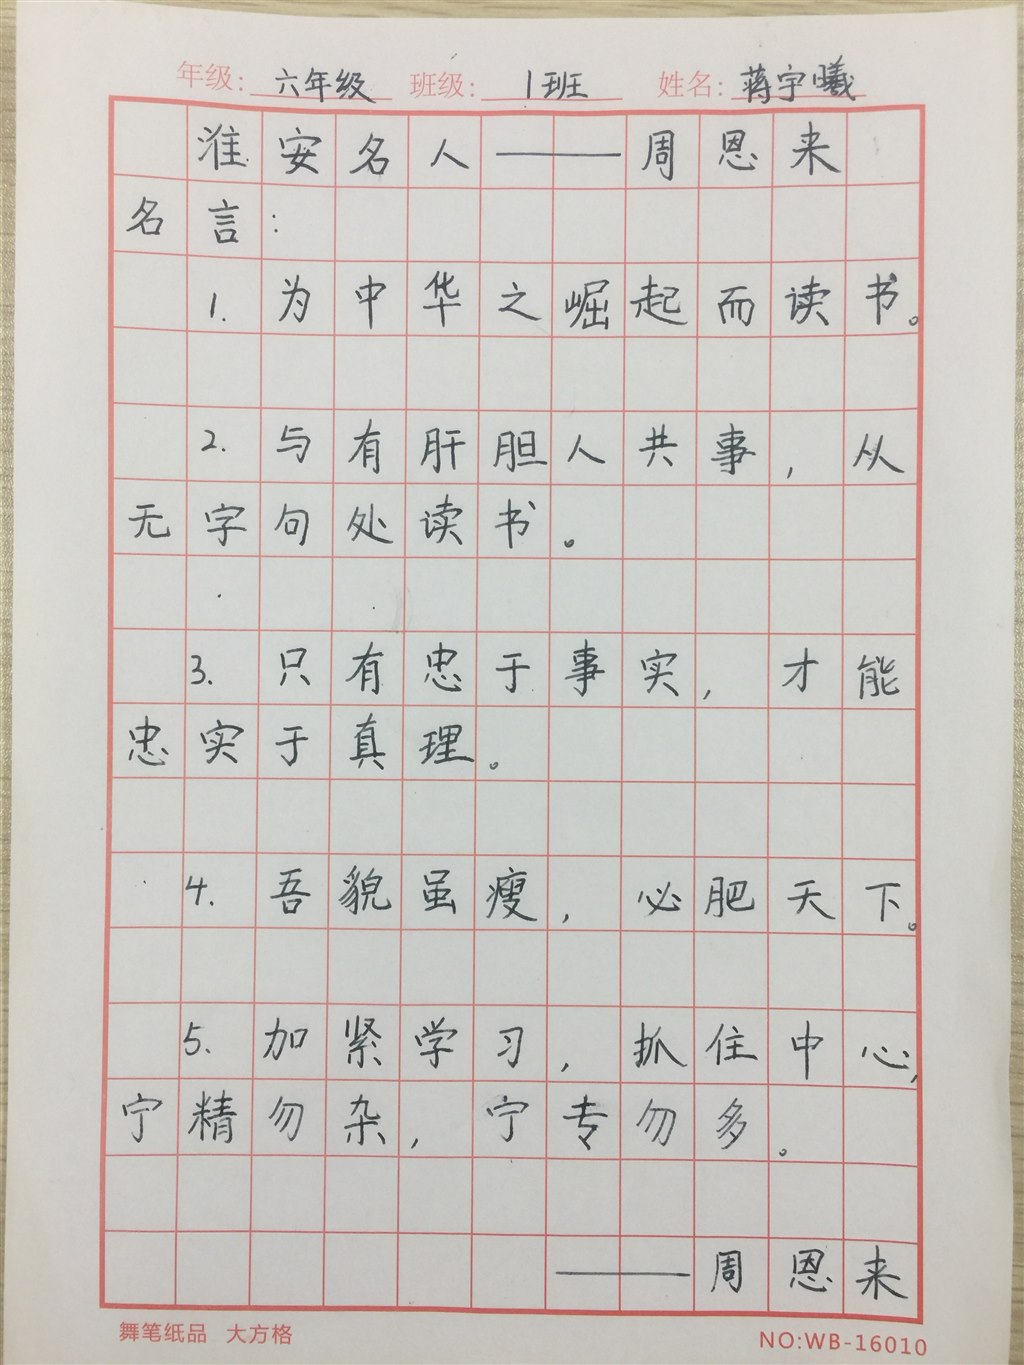 年级：六年级 班级：1班 姓名：蒋宇曦
淮安名人——周恩来
名言：
1.为中华之崛起而读书。
2.与有肝胆人共事，从
无字句处读书。
3.只有忠于事实，才能
忠实于真理。
4.吾貌虽瘦，必肥天下。
5.加紧学习，抓住中心，
宁精勿杂，宁专勿多。
——周恩来
舞笔纸品 大方格 NO:WB-16010